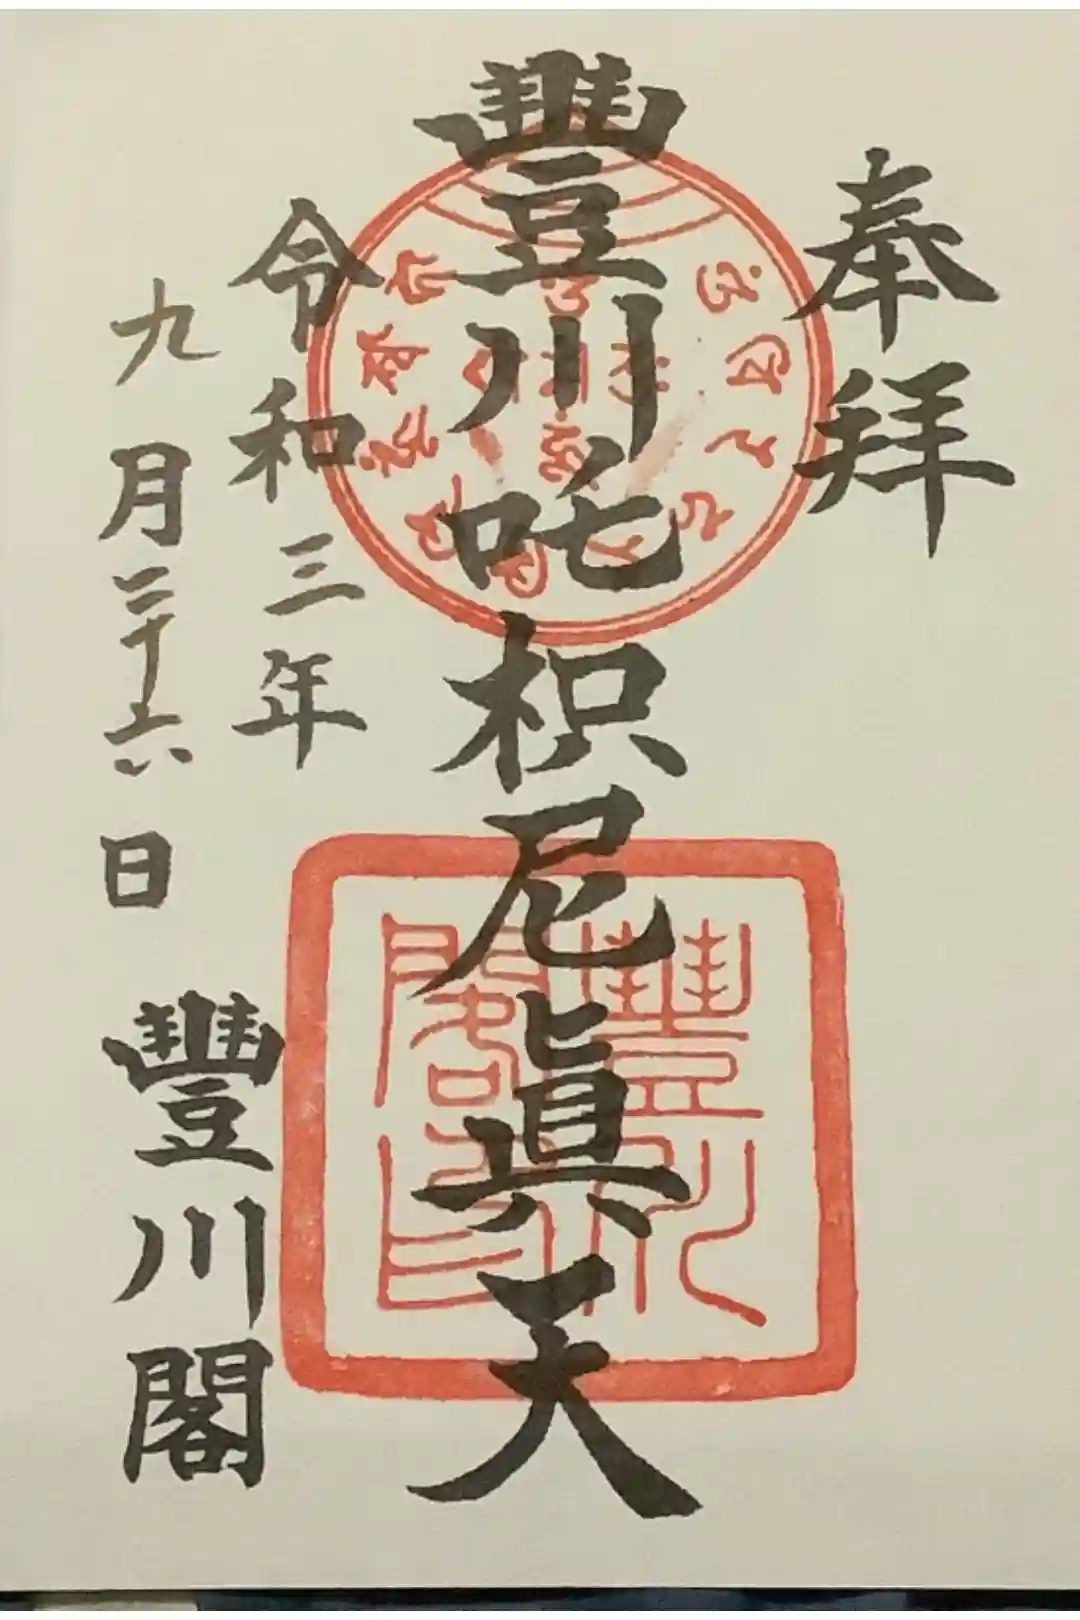 奉拜
豐川吒枳尼眞天
令和三年
九月二十六日
豐川閣
豐川閣印